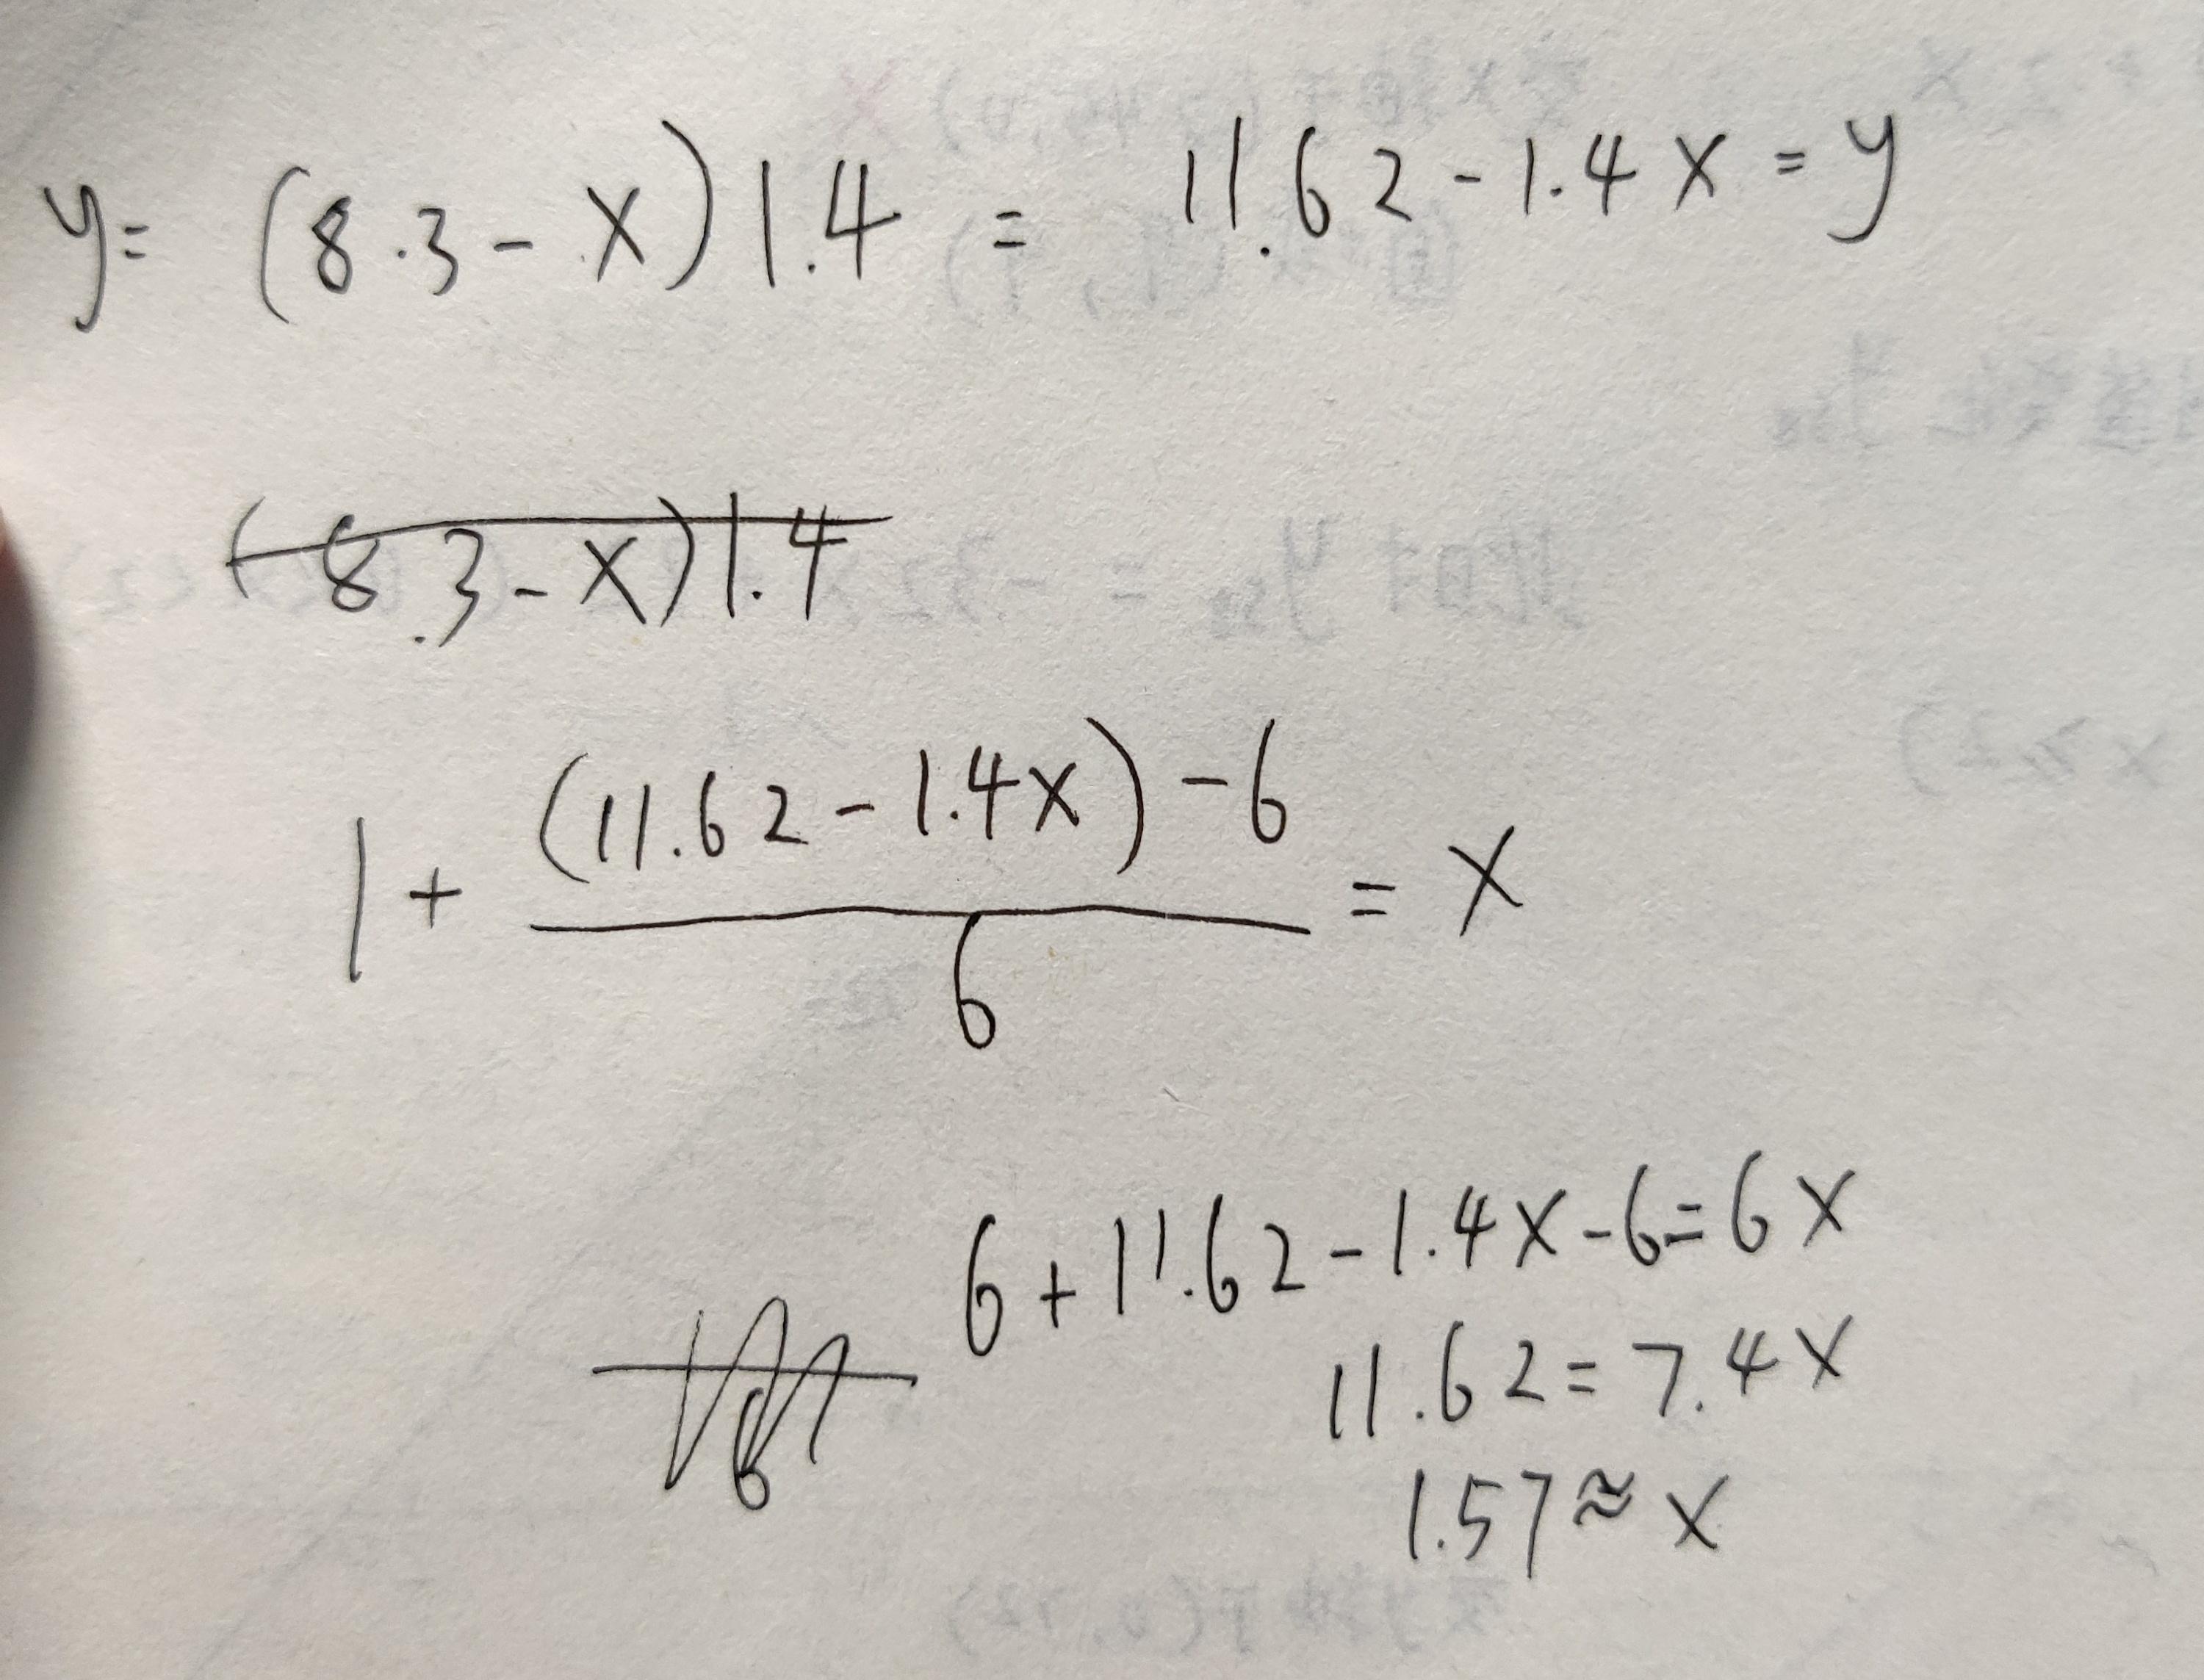 y= (8.3-x)1.4 = 11.62-1.4x=y
(8.3-x)1.4
1+ (11.62-1.4x)-6 = x
6
6+11.62-1.4x-6=6x
6
11.62=7.4x
1.57≈x